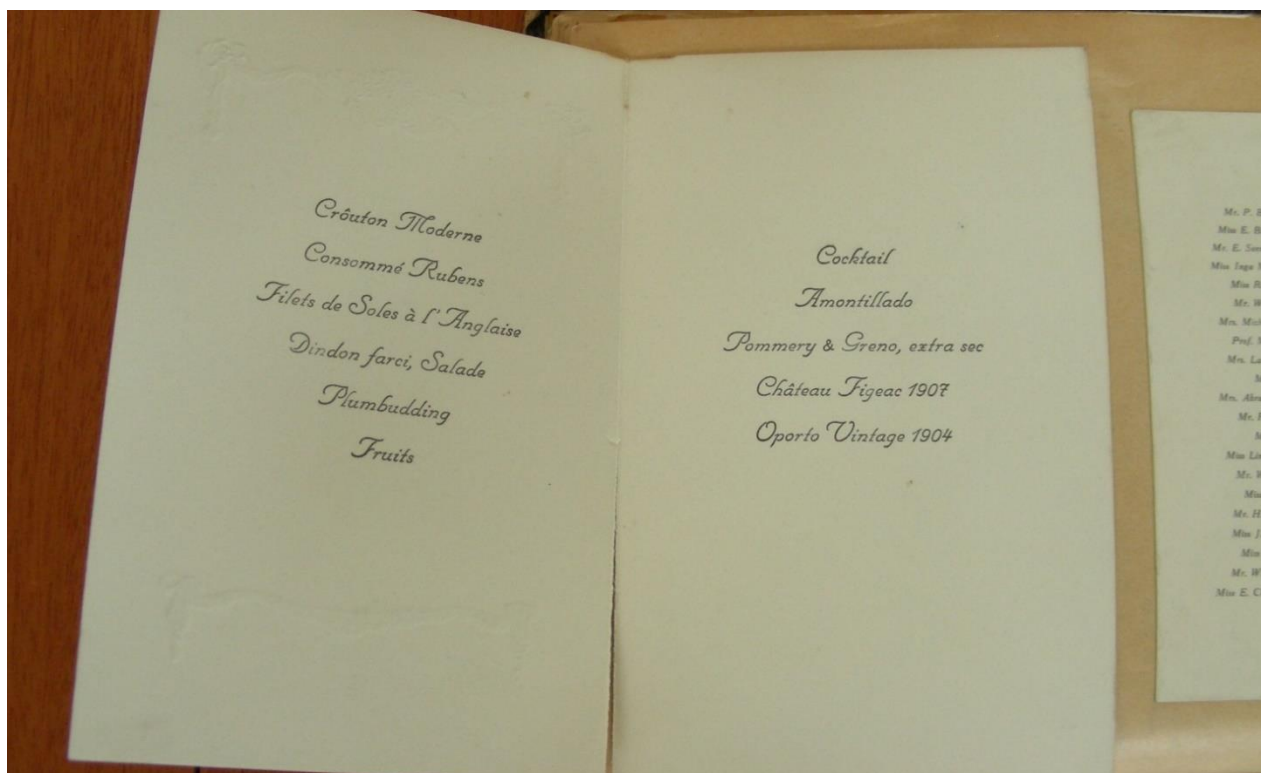 Crôuton Moderne
Consommé Rubens
Filets de Soles à l'Anglaise
Dindon farci, Salade
Plumbudding
Fruits
Cocktail
Amontillado
Pommery & Greno, extra sec
Château Figeac 1907
Oporto Vintage 1904
Mr. P.
Miss E.
Mr. E.
Miss Inga
Miss
Mr. W
Mrs.
Prof.
Mrs.
Mrs.
Mr.
Miss
Mr.
Mr. H
Miss J
Mr. W
Miss E. C